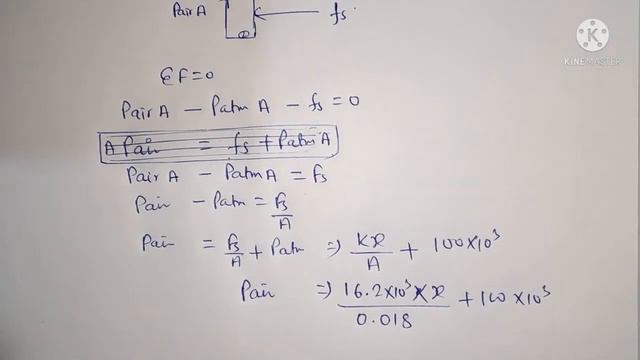 Pair A
fs
K
KINEMASTER
ΣF=0
Pair A − Patm A − fs = 0
A Pair = fs + Patm A
Pair A − Patm A = fs
Pair − Patm = fs/A
Pair = fs/A + Patm ⇒ Kx/A + 100×10³
Pair ⇒ 16.2×10³ × x / 0.018 + 100×10³